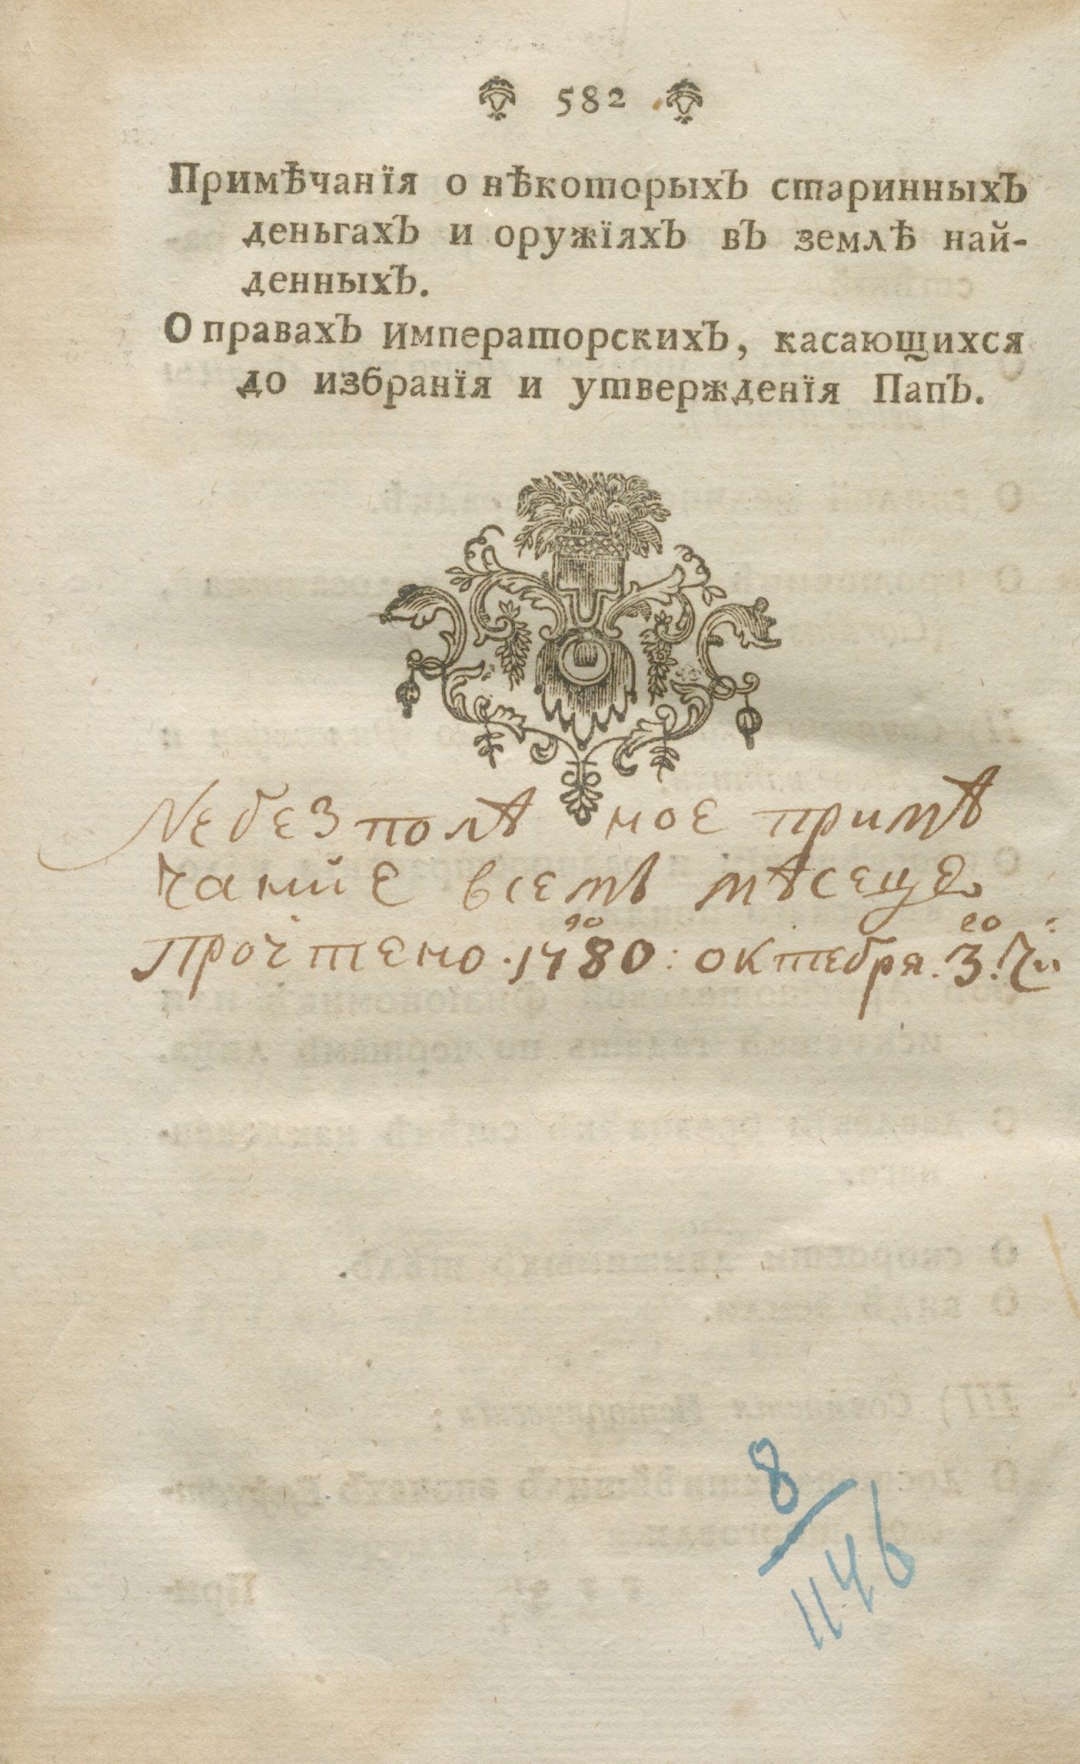 582
Примѣчанїя о нѣкоторыхЪ старинныхЪ
деньгахЪ и оружїяхЪ вЪ землѣ най-
денныхЪ.
О правахЪ императорскихЪ, касающихся
до избранїя и утвержденїя ПапЪ.
Небезполѣ ное примѣ
чание всемъ мѣсеце
го го
прочтено . 1780 : октебря . 3 .
8
1146